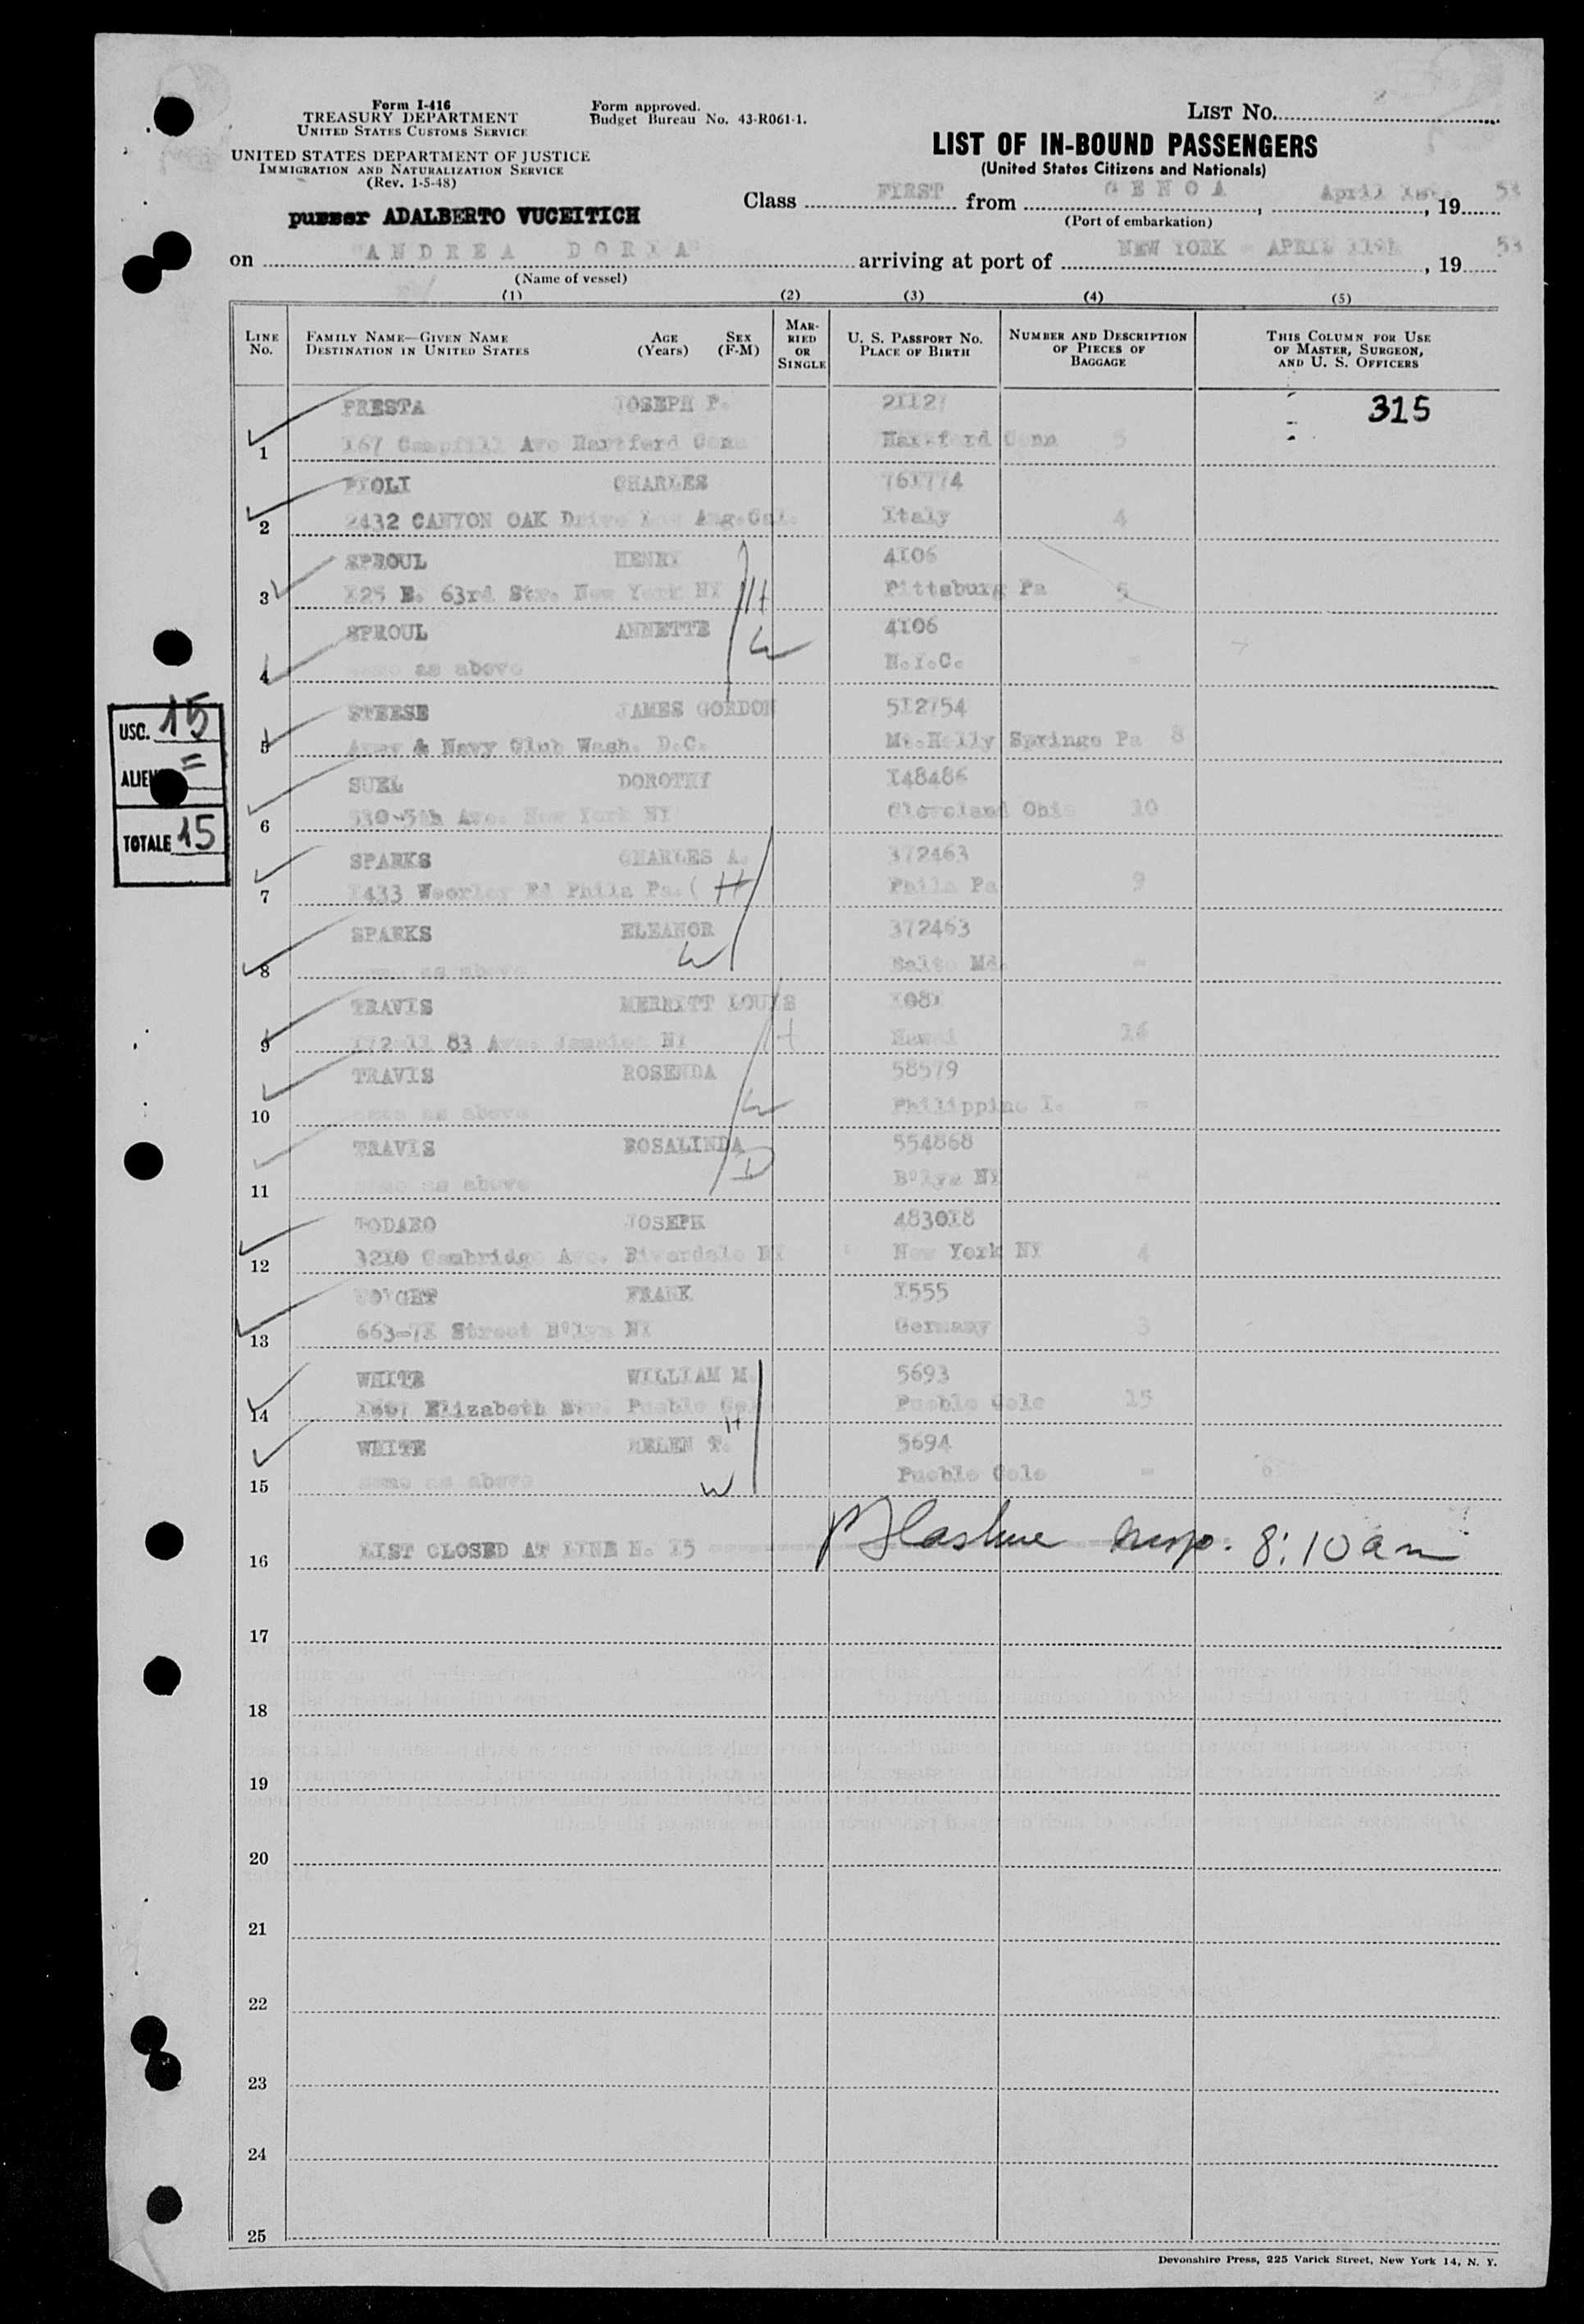 Form I-416
TREASURY DEPARTMENT
UNITED STATES CUSTOMS SERVICE
Form approved.
Budget Bureau No. 43-R061-1.
LIST NO.
UNITED STATES DEPARTMENT OF JUSTICE
IMMIGRATION AND NATURALIZATION SERVICE
(Rev. 1-5-48)
LIST OF IN-BOUND PASSENGERS
(United States Citizens and Nationals)
Class FIRST from GENOA, April, 19 53
(Port of embarkation)
purser ADALBERTO VUCEITICH
on "ANDREA DORIA" arriving at port of NEW YORK - APRIL, 19 53
(Name of vessel)
(1) (2) (3) (4) (5)
LINE NO. FAMILY NAME—GIVEN NAME DESTINATION IN UNITED STATES AGE (Years) SEX (F-M) MARRIED OR SINGLE U. S. PASSPORT NO. PLACE OF BIRTH NUMBER AND DESCRIPTION OF PIECES OF BAGGAGE THIS COLUMN FOR USE OF MASTER, SURGEON, AND U. S. OFFICERS
PRESTA JOSEPH P. 315
1 Ave Hartford Conn Hartford Conn 5
PIOLI CHARLES 761774
2 2432 CANYON OAK Drive Los Ang. Cal. Italy 4
SPROUL HENRY 4106
3 125 E. 63rd Str. New York NY H Pittsburg Pa 5
SPROUL ANNETTE W 4106
4 same as above N.Y.C. -
STEESE JAMES GORDON 512754
5 Army & Navy Club Wash. D.C. Mt.Holly Springs Pa 8
SUEL DOROTHY 148486
6 530-5th Ave. New York NY Cleveland Ohio 10
SPARKS CHARLES A. 372463
7 1433 Rd Phila Pa. H Phila Pa 9
SPARKS ELEANOR 372463
8 same as above W Balto Md. -
TRAVIS MERRITT LOUIS 1081
9 83 Ave. Jamaica NY H Hawai 16
TRAVIS ROSENDA 58579
10 same as above W Philippine I. -
TRAVIS ROSALINDA 554868
11 same as above D B'lyn NY -
TODARO JOSEPH 483018
12 3210 Cambridge Ave. Riverdale NY New York NY 4
FRANK 1555
13 663-71 Street B'lyn NY Germany 3
WHITE WILLIAM M. 5693
14 Elizabeth Str. Pueblo Col H Pueblo Colo 15
WHITE HELEN T. 5694
15 same as above W Pueblo Colo -
16 LIST CLOSED AT LINE N. 15 insp. 8:10 am
17
18
19
20
21
22
23
24
25
USC. 15
ALIEN =
TOTALE 15
Devonshire Press, 225 Varick Street, New York 14, N. Y.